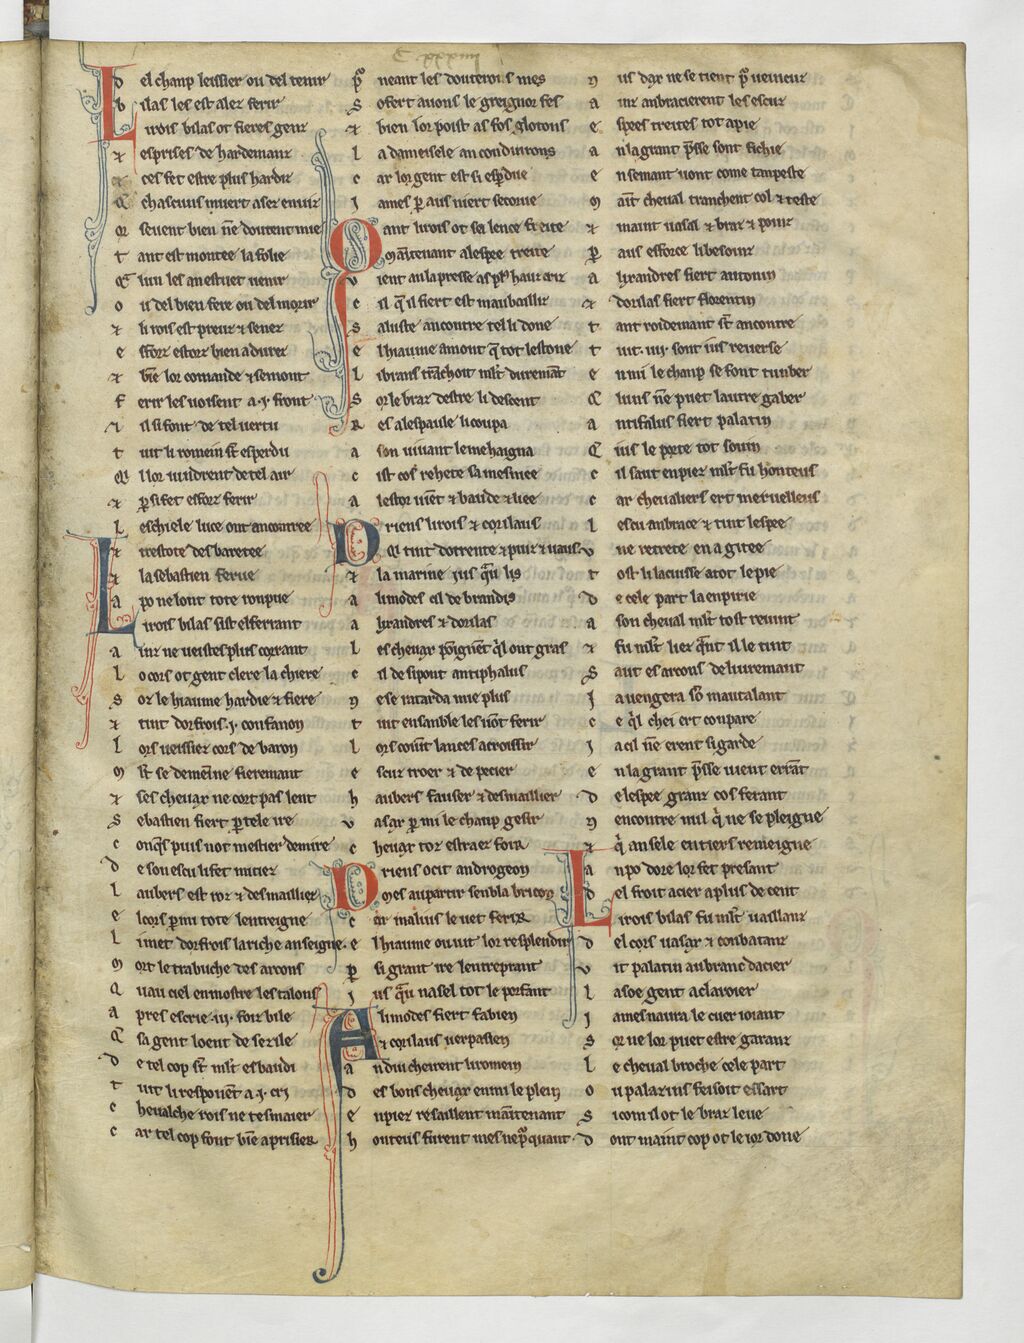 C xxxiiii
D el chanp leissier ou del tenir
b ilas les est alez ferir
L irois bilas ot fieres genz
⁊ esprises de hardemanz
⁊ ces fet estre plus hardiz
Q chascuns muert aser enuiz
or seuent bien ñe doutent mie
t ant est montee la folie
Q lun les an estuet uenir
o u del bien fere ou del morir
⁊ li rois est preuz ⁊ senez
e sforz estorz bien adurez
⁊ bñe lor comande ⁊ semont
f erir les uoisent a .j. front
⁊ il si font de tel uertu
t uit li romein st̃ esperdu
Q l lor uindrent de tel air
⁊ p̲ si fet esforz ferir
L eschiele luce ont ancontree
⁊ restote desbaretee
⁊ la sebastien ferue
a po ne lont tote ronpue
L irois bilas sist el ferrant
a inz ne ueistes plus corant
l o cors ot gent clere la chiere
s or le hiaume hardie ⁊ fiere
⁊ tint dorfrois .j. confanon
l ors ueissiez cors de baron
m lt̃ se demeñne fieremant
⁊ ses cheuax ne cort pas lent
S ebastien fiert p̲ tele ire
c onq̃s puis not mestier demire
d e son escu li fet
l aubers est roz ⁊ desmailliez
e l cors p̲mi tote lenteigne
l i met dorfrois la riche anseigne
m ort le trabuche des arcons
a uau ciel en mostre les talons
a pres escrie .iij. foiz bile
Q sa gent loent de se rile
d e tel cop st̃ mlt̃ esbaudi
t uit li responẽt a .j. cri
c heualche rois ne tesmaier
c ar tel cop font bñe aprisier
p̃ neant les douterons mes
S ofert auons le greignor fes
⁊ bien lor poist as fos glotons
l a dameisele an condurons
c ar lor gent est si esp̲due
j ames p̲ aus niert secorue
Q ant li rois ot sa lence frete
m ãtenant a lespee trete
v ient an la presse as pl᷒ hauz criz
c il q̃ il fiert est maubailliz
s aluste ancontre tel li done
e l hiaume amont q̃ tot lestone
l i branz trãchoit mlt̃ duremãt
S or le braz destre li descent
R es a lespaule li coupa
a son uiuant le mehaigna
c ist cos rehete sa mesniee
a lestor uiẽt ⁊ baude ⁊ liee
D riens li rois ⁊ corilaus
Q tint dotrente ⁊ puiz ⁊ uaus
⁊ la marine jus q̃u lis
a limodes cil de brandis
a lixandres ⁊ dorilas
l es cheuax poignẽt q̃l ont gras
c il de sipont antiphalus
n e se tarda mie plus
t uit ensanble les uõt ferir
l ors coint lances acroissir
e scuz troer ⁊ de pecier
h aubers fauser ⁊ desmaillier
v asax p̲ mi le chanp gesir
c heuax toz estraiers foir
D riens ocit androgeon
m es au partir senbla bricon
c ar malius le uet ferir
e l hiaume ou uit lor resplendir
p̲ si grant ire lentreprant
j us q̃u nasel tot le porfant
A limodes fiert fabien
⁊ corilaus uerpasien
a ndui cheirent li romein
d es bons cheuax enmi le plein
e npiez resaillent mãtenant
h onteus furent mes nep̃quant
n us dax ne se tient p̃ ueincuz
a inz anbracierent les escuz
e spees tretes tot apie
a n la grant p̲sse sont fichie
e nsemant uont come tanpeste
m aĩt cheual tranchent col ⁊ teste
⁊ maint uasal ⁊ braz ⁊ poinz
p̲ aus esforce li besoinz
a lixandres fiert antonin
⁊ dorilas fiert florentin
t ant roidemant st̃ ancontre
t uit .iiij. sont ius reuerse
e nmi le chanp se font tunber
Q luns ñe puet lautre gaber
a ntifalus fiert palatin
Q ius le porte tot souin
c il saut enpiez mlt̃ fu honteus
c ar cheualiers ert merueilleus
l escu anbrace ⁊ tint lespee
v ne retrete en a gitee
t ost li la cuisse atot le pie
d e cele part la enpirie
a son cheual mlt̃ tost reuint
⁊ fu mlt̃ liez q̃nt il le tint
S aut es arcons deliuremant
j a uengera sõ mautalant
c e q̃l chei ert conpare
j a cil ñe erent si garde
e n la grant p̲sse uient errãt
d e lespee granz cos ferant
n encontre nul q̃ ne se pleigne
⁊ q̃ an sele entiers remeigne
a npo dore lor fet presant
d el froit acier a plus de cent
L irois bilas fu mlt̃ uaillanz
d el cors uasax ⁊ conbatanz
v it palatin au branc dacier
l a soe gent aclaroier
j ames naura le cuer ioiant
s or ne lor puet estre garanz
l e cheual broche cele part
o u palazins feisoit essart
s icom il ot le braz leue
d ont maint cop ot le ior done